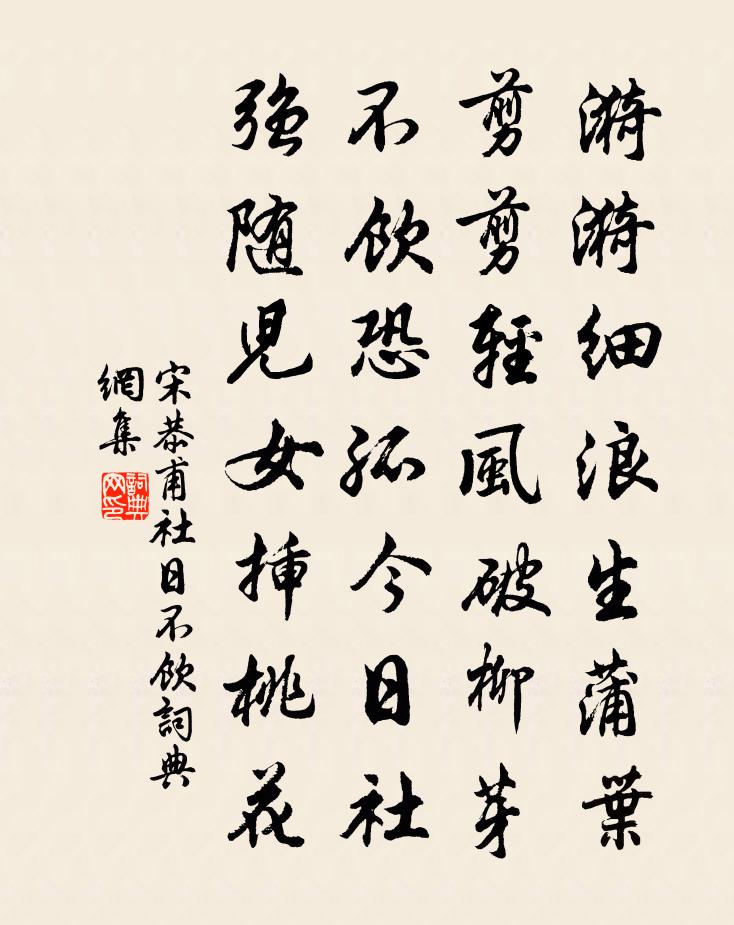 漪漪細浪生蒲葉
剪剪輕風破柳芽
不飲恐孤今日社
強随児女挿桃花
宋恭甫社日不飲詞典
網集
詞典网印